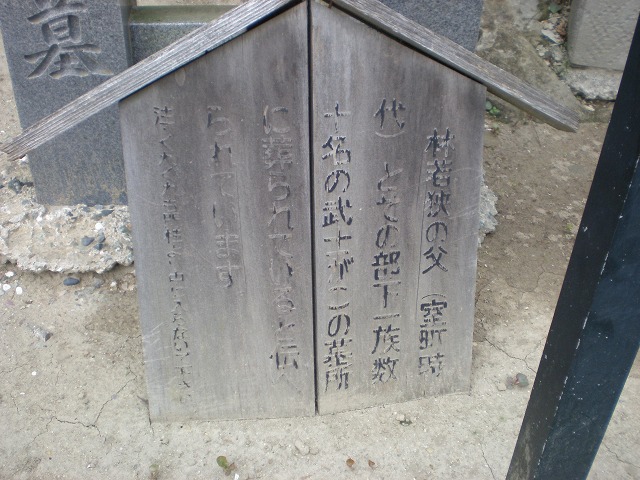 林若狭の父（室町時
代）とその部下一族数
十名の武士がこの墓所
に葬られていると伝へ
られています
墓